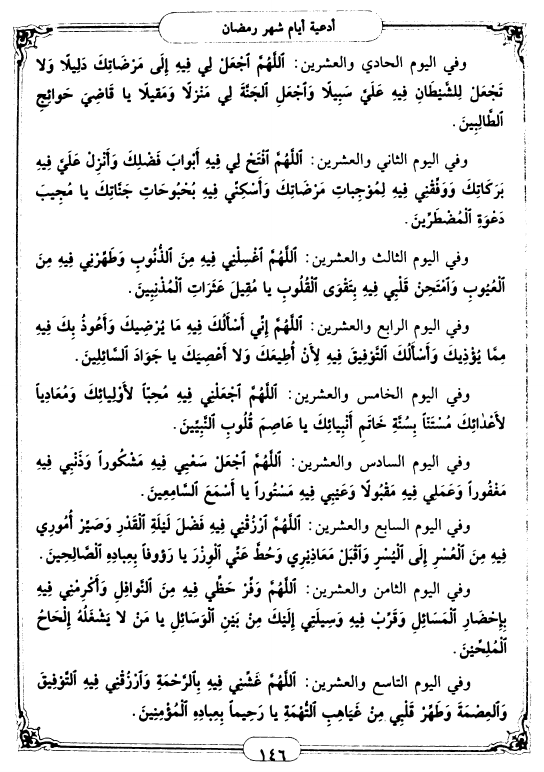 أدعية أيام شهر رمضان
وفي اليوم الحادي والعشرين: اَللَّهُمَّ اجْعَلْ لِي فِيهِ إِلَى مَرْضَاتِكَ دَلِيلًا وَلا
تَجْعَلْ لِلشَّيْطَانِ فِيهِ عَلَيَّ سَبِيلًا وَاجْعَلِ الْجَنَّةَ لِي مَنْزِلًا وَمَقِيلًا يا قَاضِيَ حَوائِجِ
الطَّالِبِينَ.
وفي اليوم الثاني والعشرين: اَللَّهُمَّ افْتَحْ لِي فِيهِ أَبْوابَ فَضْلِكَ وَأَنْزِلْ عَلَيَّ فِيهِ
بَرَكَاتِكَ وَوَفِّقْنِي فِيهِ لِمُوجِباتِ مَرْضَاتِكَ وَأَسْكِنِّي فِيهِ بُحْبُوحَاتِ جَنَّاتِكَ يا مُجِيبَ
دَعْوَةِ الْمُضْطَرِّينَ.
وفي اليوم الثالث والعشرين: اَللَّهُمَّ اغْسِلْنِي فِيهِ مِنَ الذُّنُوبِ وَطَهِّرْنِي فِيهِ مِنَ
الْعُيُوبِ وَامْتَحِنْ قَلْبِي فِيهِ بِتَقْوَى الْقُلُوبِ يا مُقِيلَ عَثَرَاتِ الْمُذْنِبِينَ.
وفي اليوم الرابع والعشرين: اَللَّهُمَّ إِنِّي أَسْأَلُكَ فِيهِ مَا يُرْضِيكَ وَأَعُوذُ بِكَ فِيهِ
مِمَّا يُؤْذِيكَ وَأَسْأَلُكَ التَّوْفِيقَ فِيهِ لِأَنْ أُطِيعَكَ وَلا أَعْصِيَكَ يا جَوَادَ السَّائِلِينَ.
وفي اليوم الخامس والعشرين: اَللَّهُمَّ اجْعَلْنِي فِيهِ مُحِبّاً لأَوْلِيائِكَ وَمُعَادِياً
لأَعْدَائِكَ مُسْتَنّاً بِسُنَّةِ خَاتَمِ أَنْبِيائِكَ يا عاصِمَ قُلُوبِ النَّبِيِّينَ.
وفي اليوم السادس والعشرين: اَللَّهُمَّ اجْعَلْ سَعْيِي فِيهِ مَشْكُوراً وَذَنْبِي فِيهِ
مَغْفُوراً وَعَمَلِي فِيهِ مَقْبُولًا وَعَيْبِي فِيهِ مَسْتُوراً يا أَسْمَعَ السَّامِعِينَ.
وفي اليوم السابع والعشرين: اَللَّهُمَّ ارْزُقْنِي فِيهِ فَضْلَ لَيْلَةِ الْقَدْرِ وَصَيِّرْ أُمُورِي
فِيهِ مِنَ الْعُسْرِ إِلَى الْيُسْرِ وَاقْبَلْ مَعَاذِيرِي وَحُطَّ عَنِّي الْوِزْرَ يا رَؤُوفاً بِعِبادِهِ الصَّالِحِينَ.
وفي اليوم الثامن والعشرين: اَللَّهُمَّ وَفِّرْ حَظِّي فِيهِ مِنَ النَّوافِلِ وَأَكْرِمْنِي فِيهِ
بِإِحْضَارِ الْمَسَائِلِ وَقَرِّبْ فِيهِ وَسِيلَتِي إِلَيْكَ مِنْ بَيْنِ الْوَسَائِلِ يا مَنْ لا يَشْغَلُهُ إِلْحَاحُ
الْمُلِحِّينَ.
وفي اليوم التاسع والعشرين: اَللَّهُمَّ غَشِّنِي فِيهِ بِالرَّحْمَةِ وَارْزُقْنِي فِيهِ التَّوْفِيقَ
وَالْعِصْمَةَ وَطَهِّرْ قَلْبِي مِنْ غَيَاهِبِ التُّهْمَةِ يا رَحِيماً بِعِبادِهِ الْمُؤْمِنِينَ.
١٤٦